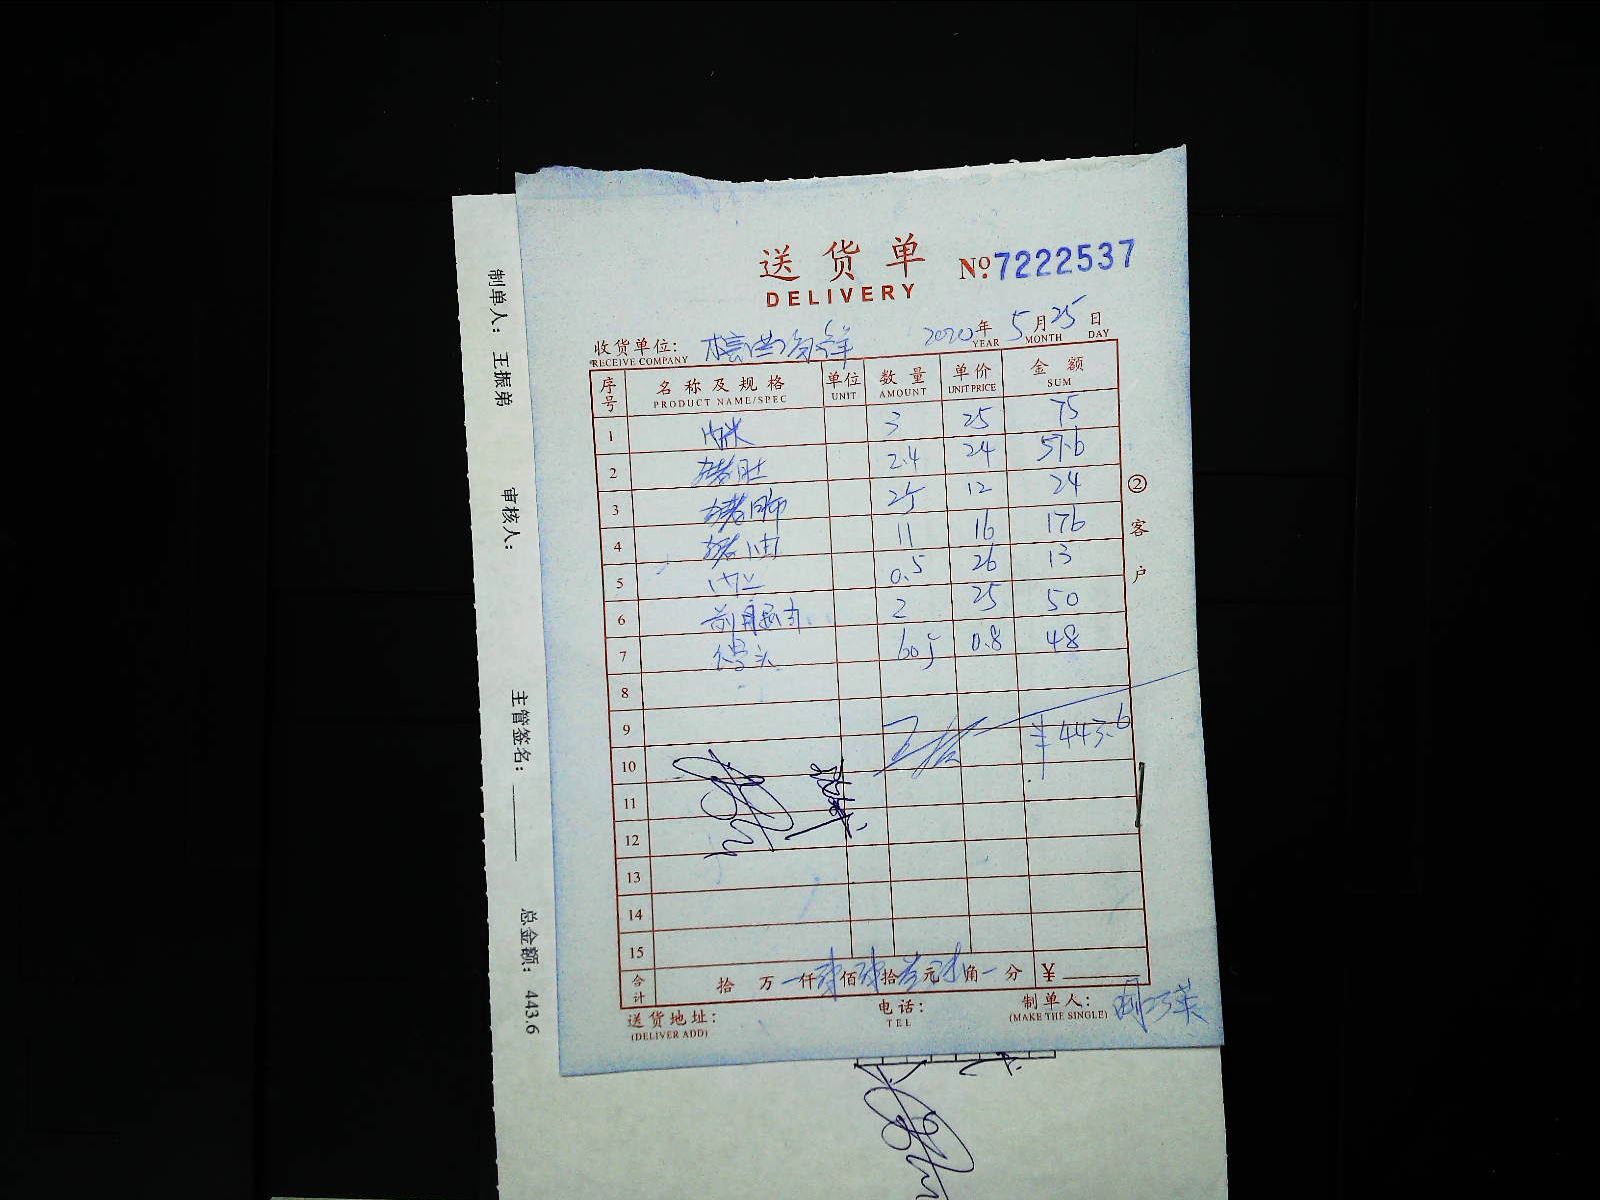 送货单
DELIVERY
No.7222537
收货单位:
RECEIVE COMPANY
2020年 5月25日
YEAR MONTH DAY
序号 名称及规格 单位 数量 单价 金额
PRODUCT NAME/SPEC UNIT AMOUNT UNIT PRICE SUM
1 肉米 3 25 75
2 猪肚 2.4 24 57.6
3 猪肺 2斤 12 24
4 猪油 11 16 176
5 0.5 26 13
6 2 25 50
7 馒头 60个 0.8 48
8
9 ¥443.6
10
11
12
13
14
15
合计 拾 万 仟肆佰肆拾叁元陆角 分 ¥
送货地址:
(DELIVER ADD)
电话:
TEL
制单人:
(MAKE THE SINGLE)
②客户
制单人: 王振弟 审核人: 主管签名: 总金额: 443.6